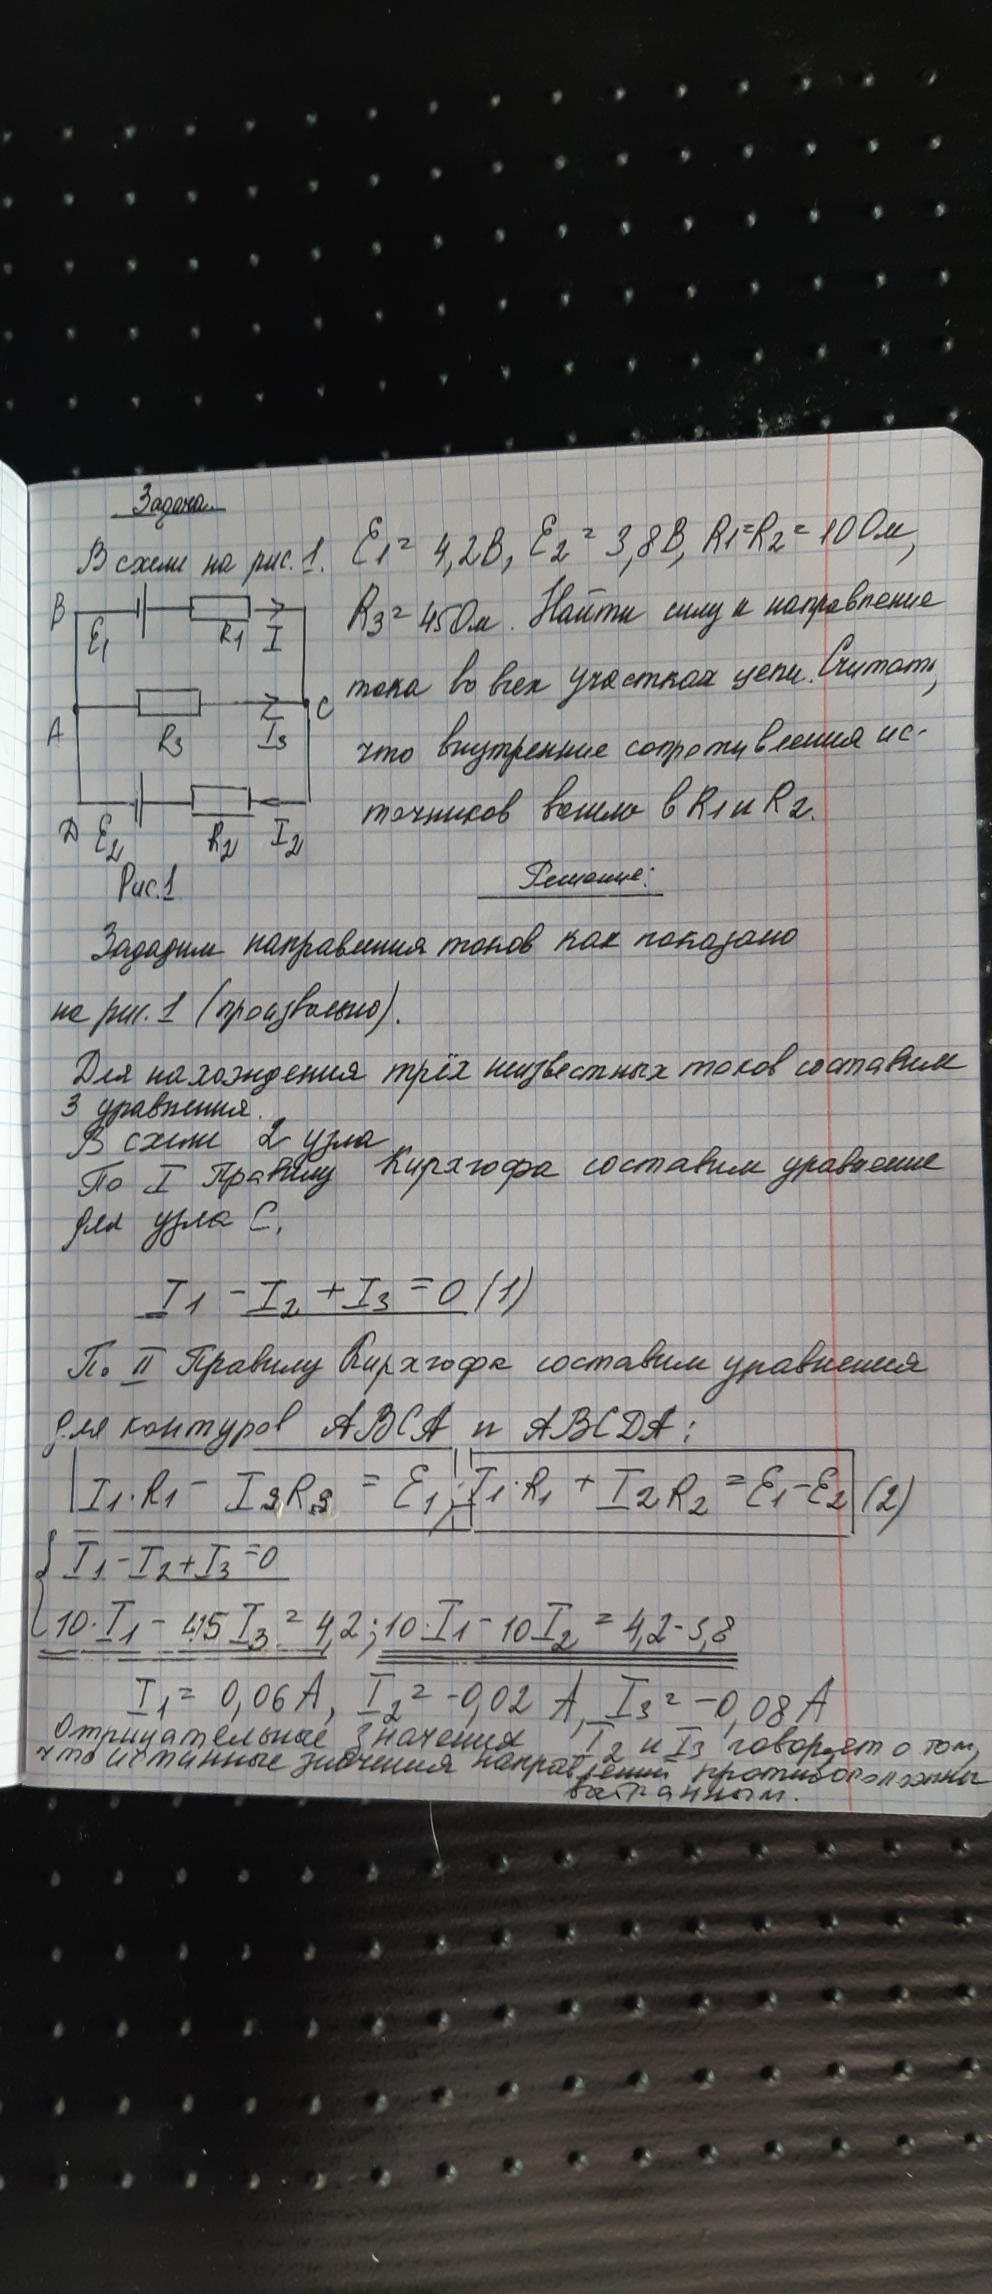 Задача
В схеме на рис. 1. Ɛ1 = 4,2В, Ɛ2 = 3,8В, R1=R2 = 10 Ом,
R3 = 45 Ом. Найти силу и направление
тока во всех участках цепи. Считать,
что внутренние сопротивления ис-
точников вошли в R1 и R2.
B
Ɛ1
R1
I
A
R3
I3
C
D
Ɛ2
R2
I2
Рис.1
Решение:
Зададим направления токов как показано
на рис. 1 (произвольно).
Для нахождения трёх неизвестных токов составим
3 уравнения.
В схеме 2 узла
По I Правилу Кирхгофа составим уравнение
для узла C.
I1 - I2 + I3 = 0 (1)
По II Правилу Кирхгофа составим уравнения
для контуров ABCA и ABCDA:
I1·R1 - I3R3 = Ɛ1; I1·R1 + I2R2 = Ɛ1-Ɛ2 (2)
I1 - I2 + I3 = 0
10·I1 - 45 I3 = 4,2; 10·I1 - 10I2 = 4,2-3,8
I1 = 0,06 А, I2 = -0,02 А, I3 = -0,08 А
Отрицательные значения I2 и I3 говорят о том,
что истинные значения направлений противоположны
выбранным.